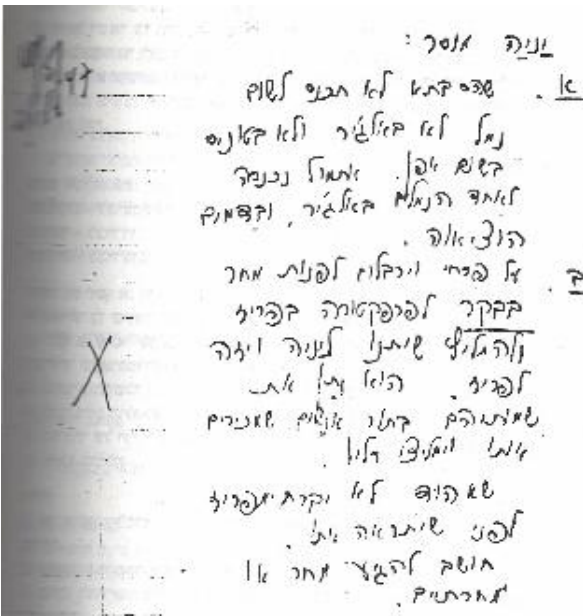 יניב מוסר:
א. שדס בתא לא תכנס לשום
נמל לא באלג'יר ולא בטוניס
בשום אפן. אתמול נכנסה
לאחד הנמלים באלג'יר, ובדמים
הוציאוה.
ב. על פרחי וירבלוב לפנות מחר
בבקר לפרפקטורה בפריז
ולהמליץ שיתנו ליניב ויזה
לפריז. הוא נתן את
שמותיהם בתור אנשים שמכירים
אותו וימליצו עליו.
שאהוד לא יקרח מפריז
לפני שיתראה אתו.
חושב להגיע מחר או
מחרתים.